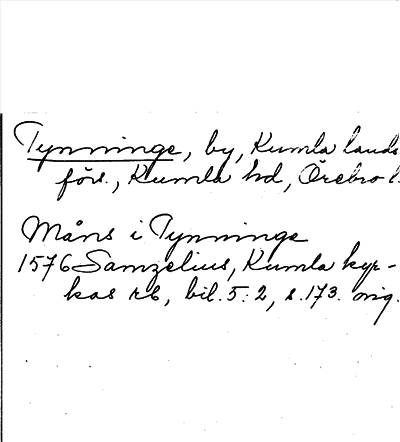 Tynninge, by, Kumla lands
förs., Kumla hd, Örebro l.
Måns i Tynninge
1576 Samzelius, Kumla kyr-
kas rb, bil. 5:2, s. 173. orig.